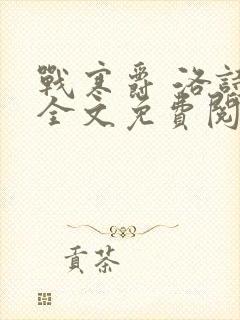 戰寒爵 洛
全文免費閱
貢茶